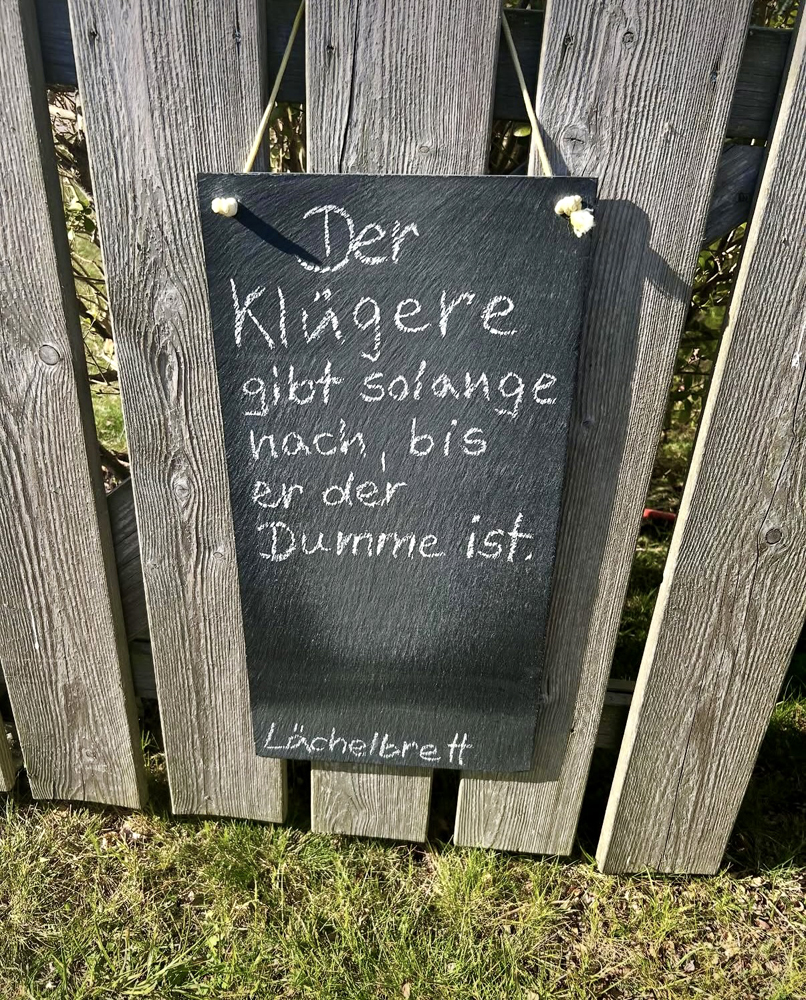 Der
Klügere
gibt solange
nach, bis
er der
Dumme ist.
Lächelbrett